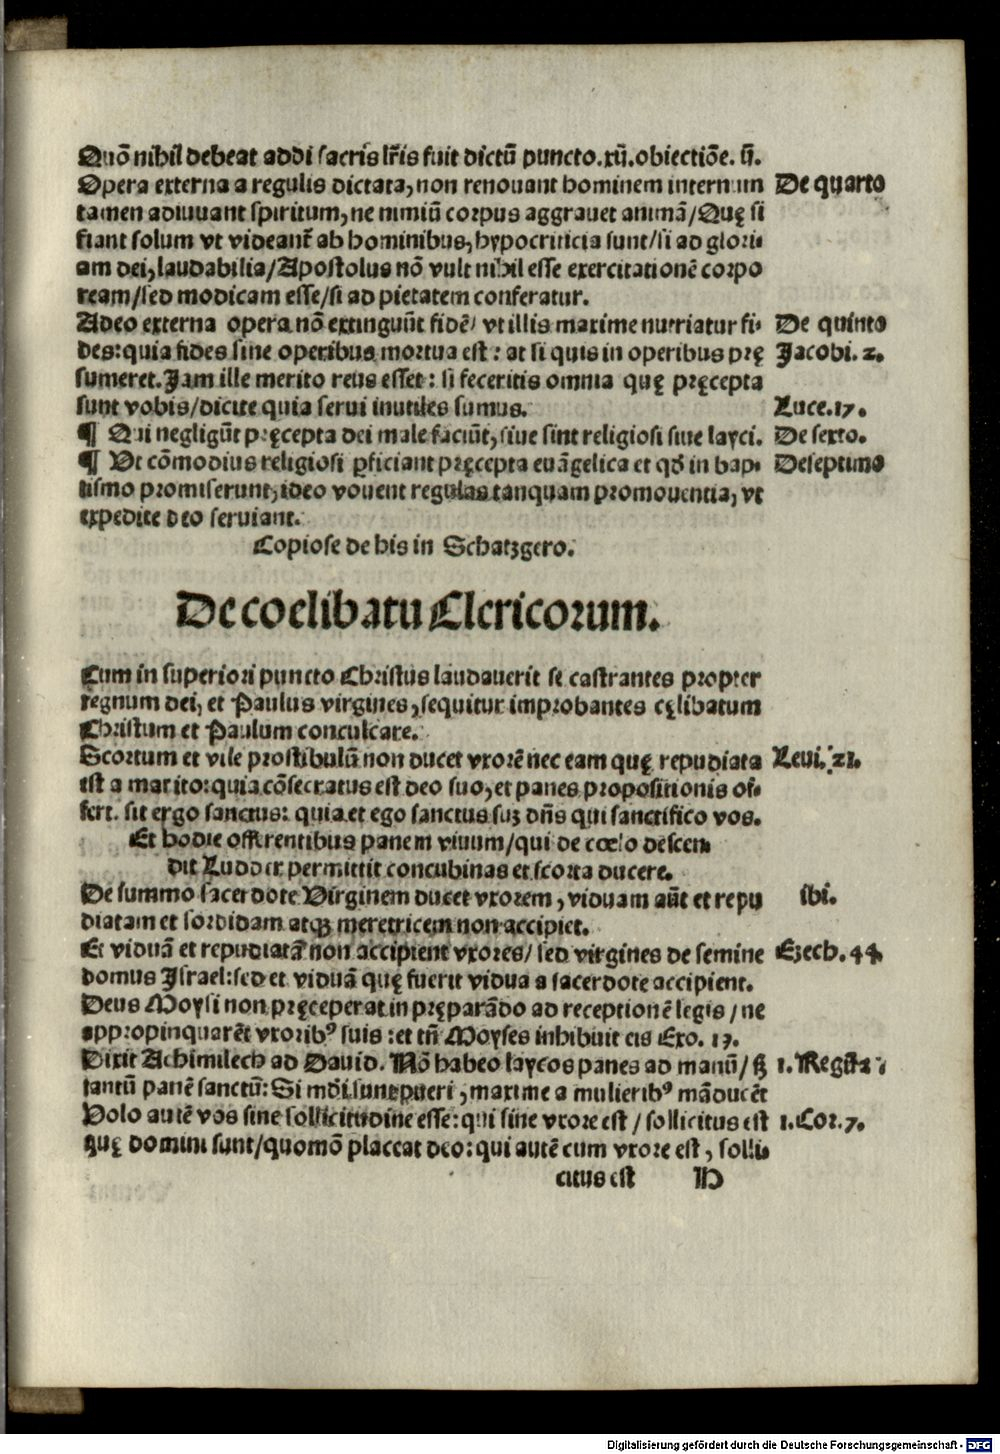 Quō nihil debeat addi sacris lr̄is fuit dictū puncto.xij.obiectiōe.ij.
Opera externa a regulis dictata, non renouant hominem internum De quarto
tamen adiuuant spiritum, ne nimiū corpus aggrauet animā/Quę si
fiant solum vt videant᷑ ab hominibus, hypocriticia sunt/si ad glori⸗
am dei, laudabilia/Apostolus nō vult nihil esse exercitationē corpo
ream/sed modicam esse/si ad pietatem conferatur.
Adeo externa opera nō extingunt fidē/ vt illis maxime nutriatur fi⸗ De quinto
des: quia fides sine operibus mortua est: at si quis in operibus prę Jacobi. 2.
sumeret. Jam ille merito reus esset: si feceritis omnia quę pręcepta
sunt vobis/dicite quia serui inutiles sumus. Luce.17.
¶ Qui negligūt pręcepta dei male faciūt, siue sint religiosi siue layci. De sexto.
¶ Vt cōmodius religiosi ꝑficiant pręcepta euāgelica et qd̄ in bap⸗ De septimo
tismo promiserunt, ideo vouent regulas tanquam promouentia, vt
expedite deo seruiant.
Copiose de his in Schatzgero.
De coelibatu Clericorum.
Cum in superiori puncto Christus laudauerit se castrantes propter
regnum dei, et Paulus virgines, sequitur improbantes cęlibatum
Christum et Paulum conculcare.
Scortum et vile prostibulū non ducet vxorē nec eam quę repudiata Leui. 21.
est a marito: quia cōsecratus est deo suo, et panes propositionis of⸗
fert. sit ergo sanctus: quia et ego sanctus suꝫ dn̄s qui sanctifico vos.
Et hodie offerentibus panem viuum/qui de cœlo descen
dit Ludder permittit concubinas et scorta ducere.
De summo sacerdote Virginem ducet vxorem, viduam aūt et repu ibi.
diatam et sordidam atqꝫ meretricem non accipiet.
Et viduā et repudiatā non accipient vxores/ sed virgines de semine Ezech. 44.
domus Israel: sed et viduā quę fuerit vidua a sacerdote accipient.
Deus Moysi non pręceperat in pręparādo ad receptionē legis / ne
appropinquarēt vxoribꝰ suis : et tn̄ Moyses inhibuit eis Exo. 19.
Dixit Achimilech ad Dauid. Nō habeo laycos panes ad manū/ sꝫ 1. Reg.
tantū panē sanctū: Si mūdi sunt pueri, maxime a mulieribꝰ māducēt
Volo autē vos sine sollicitudine esse: qui sine vxore est / sollicitus est 1. Cor. 7.
quę domini sunt/quomō placeat deo: qui autē cum vxore est, solli⸗
citus est H
Digitalisierung gefördert durch die Deutsche Forschungsgemeinschaft - DFG